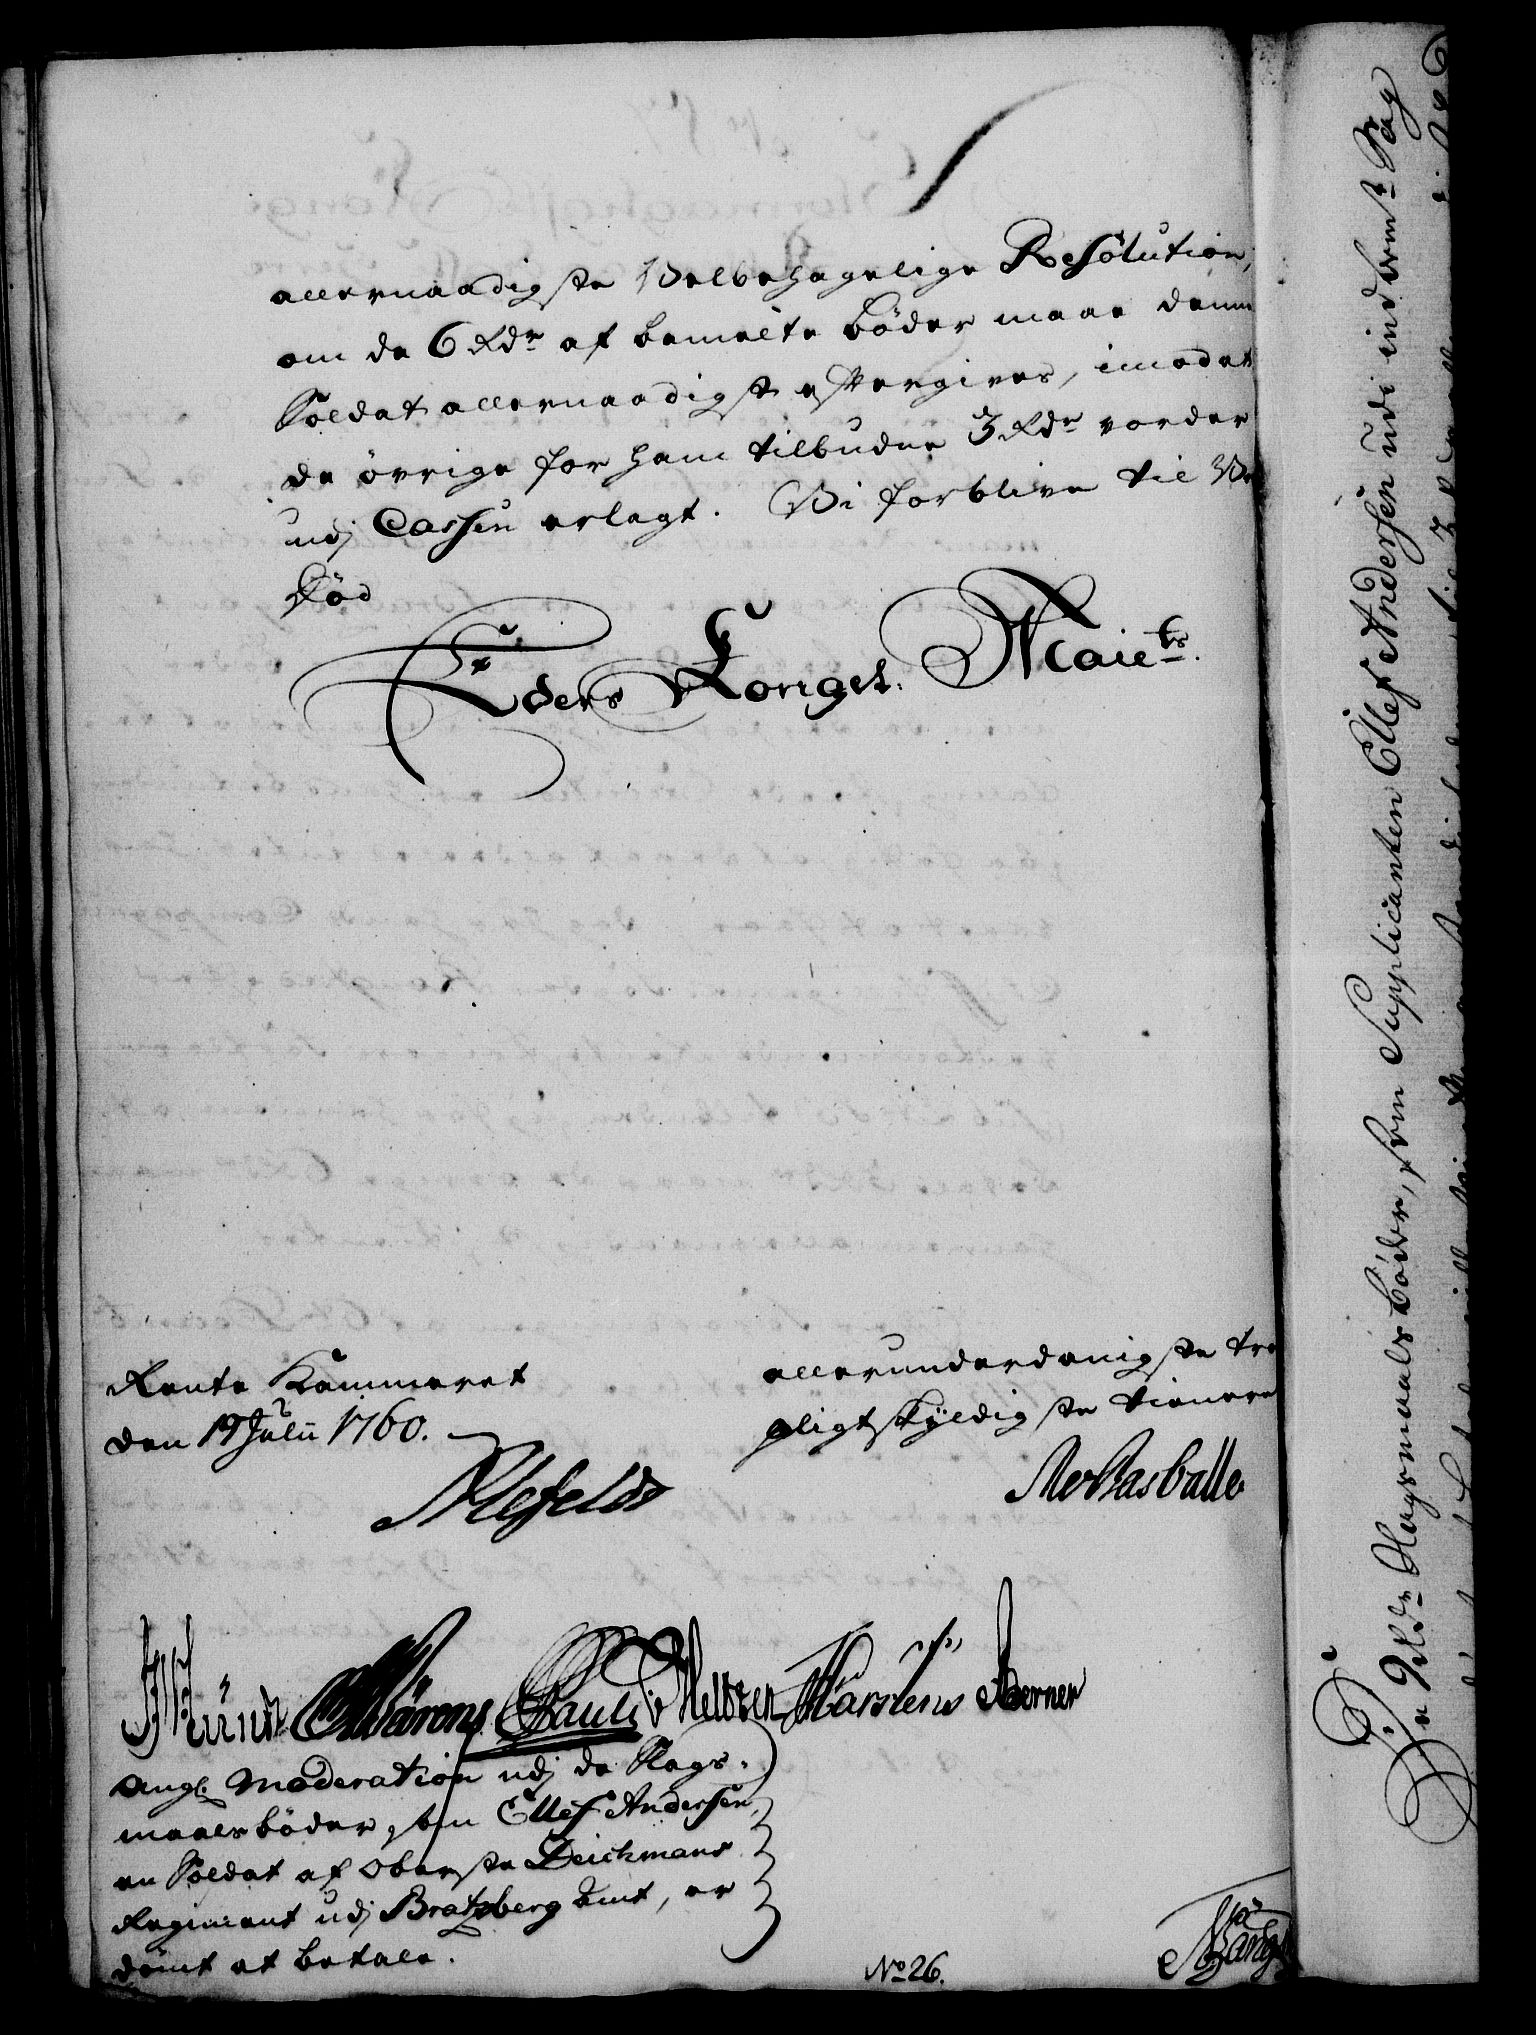 allernaadigste Velbehagelige Resolution,
om de 6 Rdr af bemelte böder maae denne
Soldat allernaadigst eftergives, imodat
de övrige for ham tilbudne 3 Rdr vorder
udj Cassen erlagt. Vi forblive til Vor
Död
Eders Kongel. Maiets.
Rente Kammeret
den 19 Julii 1760.
allerunderdanigste tro
pligtskyldigste tienere
Ahlefeldt
Wärens Pauli v Heltzen Karstens Berner
angl. Moderation udj de Slags-
maals böder, som Ellef Andersen,
en Soldat af Oberste Deichmans
Regiment udj Bratsberg Amt, er
dömt at betale.
No 26.
De 9 Rdr Slagsmaals böder, som Supplicanten Ellef Andersen udi indbemte Sag